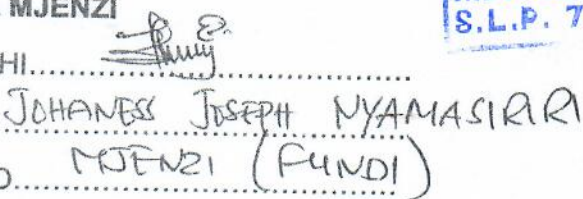 MJENZI
S.L.P. 7
HI..............................
JOHANESS JOSEPH NYAMASIRIRI
O. MJENZI (FUNDI)